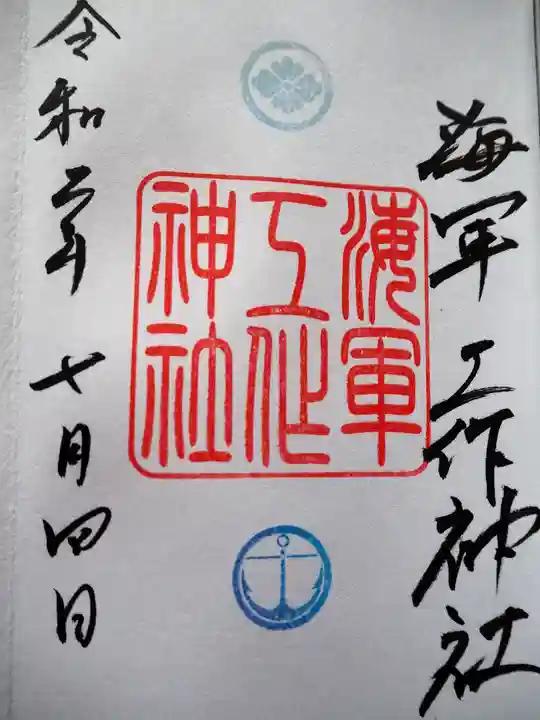 海軍工作神社
海軍
工作
神社
令和二年七月四日